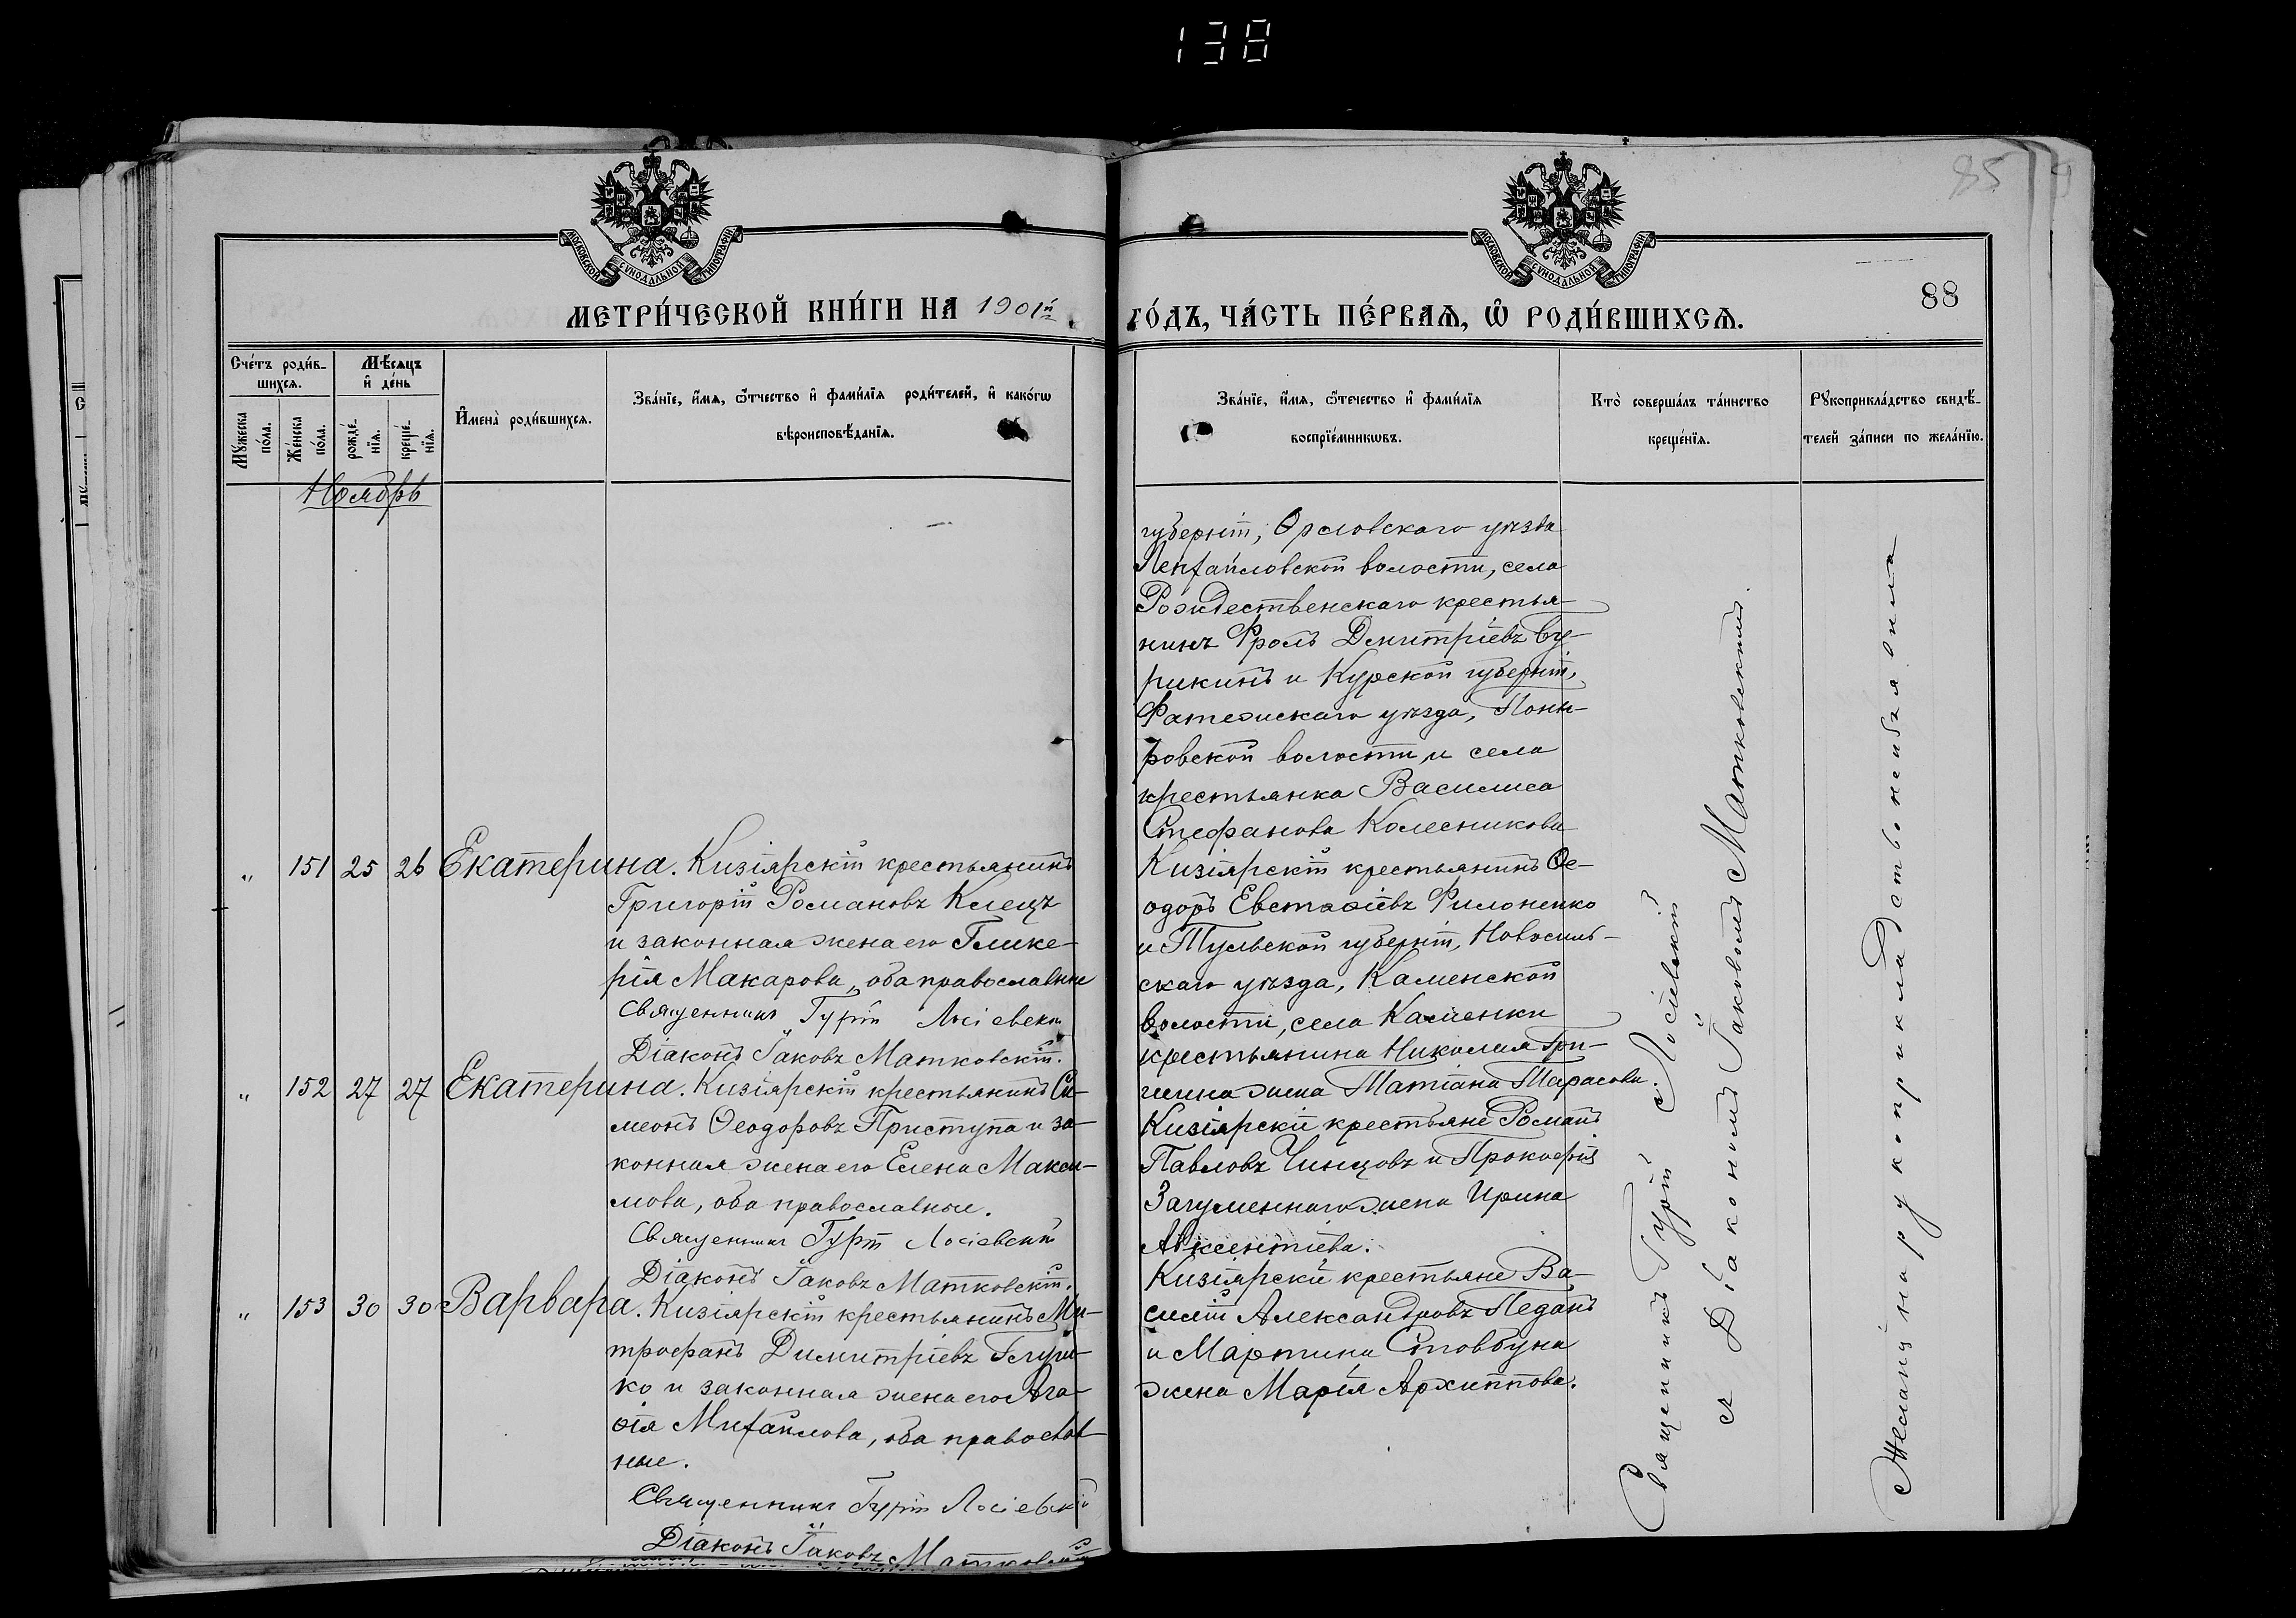 138
85
МОСКОВСКОЙ СѴНОДАЛЬНОЙ ТИПОГРАФІИ
МОСКОВСКОЙ СѴНОДАЛЬНОЙ ТИПОГРАФІИ
МЕТРИ́ЧЕСКОЙ КНИ́ГИ НА 1901й
ГО́ДЪ, ЧА́СТЬ ПЕ́РВАѦ, Ѽ РОДИ́ВШИХСѦ.
88
Сче́тъ роди́в-
шихсѧ.
Мꙋ́жеска по́ла.
Же́нска по́ла.
Мѣ́сяцъ
и҆ де́нь
рожде́-
нїѧ.
креще́-
нїѧ.
И҆мена̀ роди́вшихсѧ.
Зва́нїе, и҆́мѧ, ѻ҆́тчество и҆ фами́лїѧ роди́телей, и҆ како́гѡ
вѣроисповѣ́данїѧ.
Зва́нїе, и҆́мѧ, ѻ҆́течество и҆ фами́лїѧ
воспрїе́мникѡвъ.
Кто̀ соверша́лъ та́инство
креще́нїѧ.
Рꙋкоприкла́дство свидѣ́-
телей за́писи по жела́нїю.
Ноябрь
губерніи, Орловскаго уѣзда
волости, села
Рождественскаго крестья-
нинъ Фролъ Димитріевъ Бу-
рикинъ и Курской губерніи,
Фатежскаго уѣзда, Поны-
ровской волости и села
крестьянка Василиса
Стефанова Колесникова
" 151 25 26 Екатерина. Кизіярскій крестьянинъ
Григорій Романовъ Клецъ
и законная жена его Глике-
рія Макарова, оба православные
Священникъ Гурій Лосіевскій
Діаконъ Іаковъ Матковскій.
Кизіярскій крестьянинъ Ѳе-
одоръ Евстафіевъ Филоненко
и Тульской губерніи, Новосиль-
скаго уѣзда, Каменской
волости, села Каменки
крестьянина Николая Гри-
шина жена Татіана Тарасова.
" 152 27 27 Екатерина. Кизіярскій крестьянинъ Си-
меонъ Ѳеодоровъ Приступа и за-
конная жена его Елена Макси-
мова, оба православные.
Священникъ Гурій Лосіевскій
Діаконъ Іаковъ Матковскій.
Кизіярскіе крестьяне Романъ
Павловъ Чинцовъ и Прокофія
Загуменнаго жена Ирина
Авксентіева.
" 153 30 30 Варвара. Кизіярскій крестьянинъ Ми-
трофанъ Димитріевъ Глуш-
ко и законная жена его Ага-
ѳія Михайлова, оба православ-
ные.
Священникъ Гурій Лосіевскій
Діаконъ Іаковъ Матковскій
Кизіярскіе крестьяне Ва-
силій Александровъ Педанъ
и Мартина Стовбуна
жена Марія Архиппова.
Священникъ Гурій Лосіевскій
съ Діакономъ Іаковомъ Матковскимъ.
Желающихъ рукоприкладствоне было